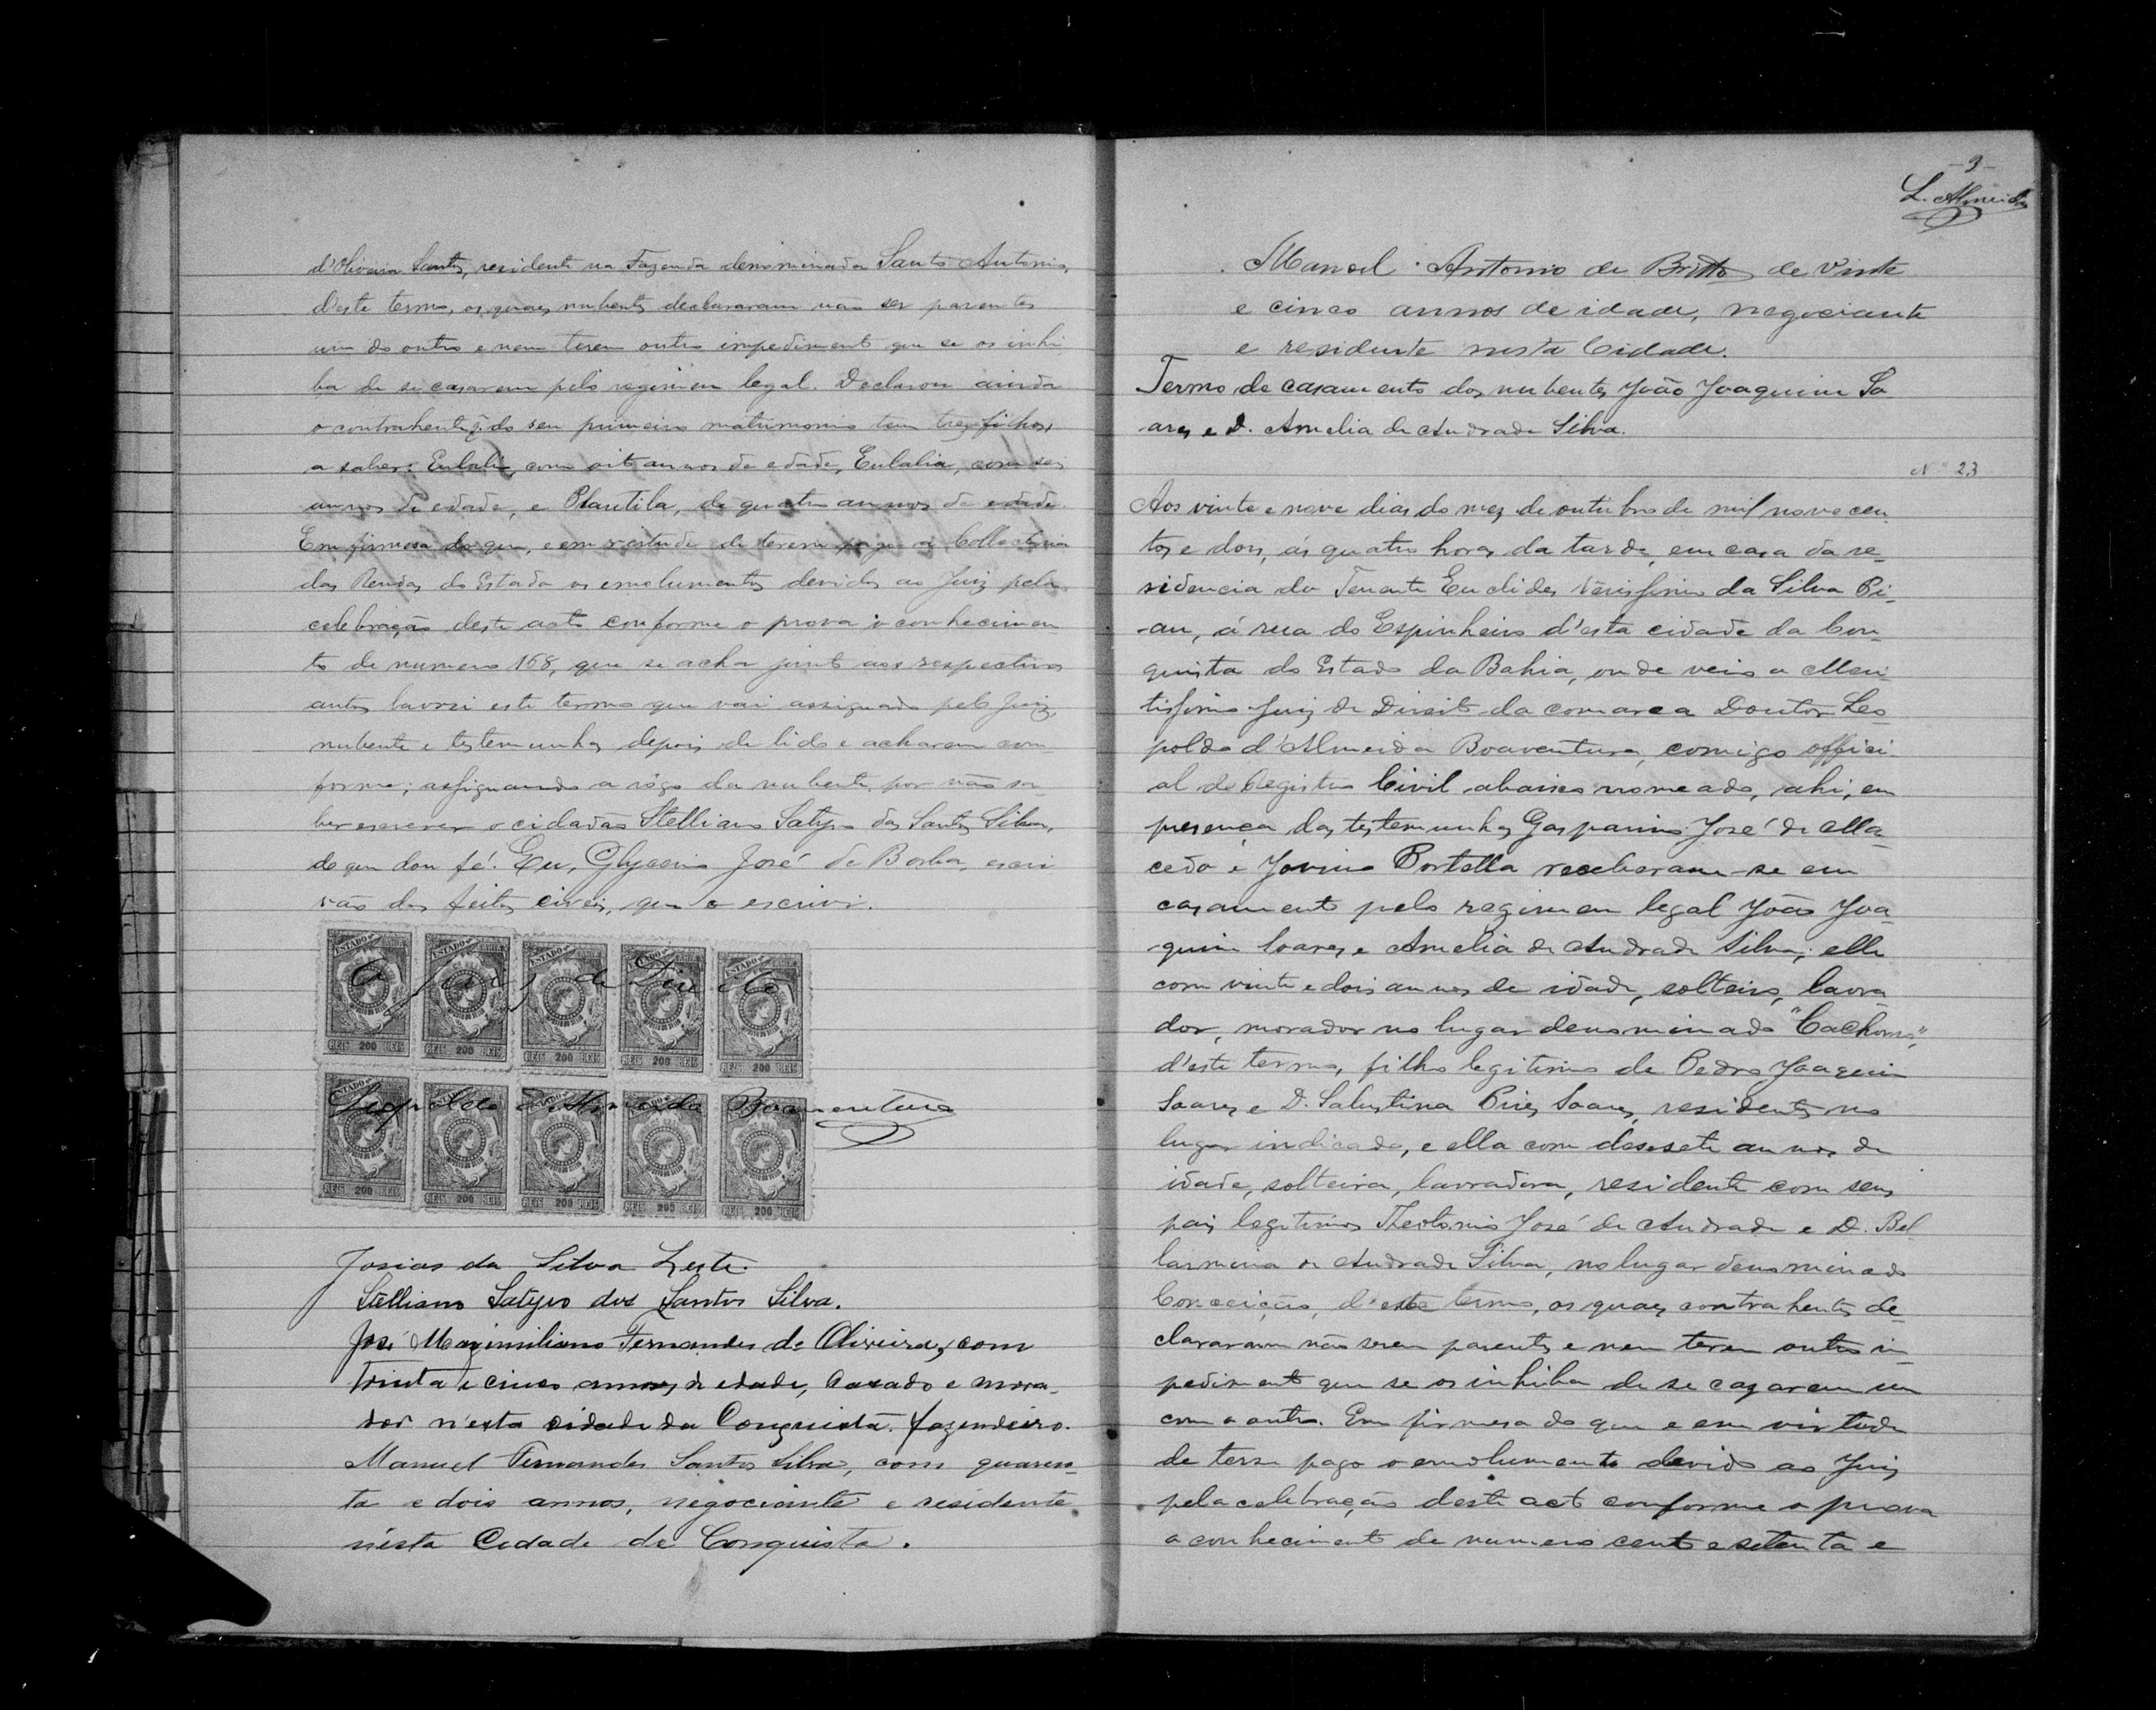 d'Oliveira Santos, residente na Fazenda denominada Santo Antonio,
d'este termo, os quaes nubentes declararam não ser parentes
um do outro e nem terem outro impedimento que se os inhi
ba de se casarem pelo regimen legal. Declarou ainda
o contrahente q. do seu primeiro matrimonio tem tres filhos,
a saber: Eulalia, com oito annos de edade, Eulalia, com seis
annos de edade, e Plautila, de quatro annos de edade.
Em firmesa do que, e em virtude de terem pago a Collectoria
das Rendas do Estado os emolumentos devidos ao Juiz pela
celebração deste acto conforme o prova o conhecimen
to de numero 168, que se acha junto aos respectivos
autos lavrei este termo que vai assignado pelo Juiz,
nubente e testemunhas depois de lido e acharem con
forme; assignando a rôgo da nubente, por não sa
ber escrever o cidadão Stelliano Satyro dos Santos Silva,
do que dou fé. Eu, Glycerio José de Borba, escri
vão dos feitos civeis, que o escrivi.
ESTADO DA BAHIA
REIS 200 REIS
O Juiz de Direito
Leopoldo d'Almeida Boaventura
Josias da Silva Leite.
Stelliano Satyro dos Santos Silva.
José Maximiliano Fernandes de Oliveira, com
trinta e cinco annos, de edade, Casado e mora-
dor n'esta cidade da Conquista. fazendeiro.
Manuel Fernandes Santos Silva, com quaren-
ta e dois annos, negociante e residente
nésta Cidade de Conquista.
-3-
L. Almeida
Manoel Antonio de Britto de vinte
e cinco annos de idade, negociante
e residente nesta Cidade.
Termo de casamento dos nubentes João Joaquim So
ares e D. Amelia de Andrade Silva.
Nº 23
Aos vinte e nove dias do mez de outubro de mil novecen-
tos e dois, ás quatro horas da tarde, em casa da re-
sidencia do Tenente Euclides Verissimo da Silva Pi-
au, á rua do Espinheiro d'esta cidade da Con-
quista do Estado da Bahia, onde veio o Meri-
tissimo Juiz de Direito da comarca Doutor Leo
poldo d'Almeida Boaventura, comigo offici-
al do Registro Civil abaixo nomeado, ahi, em
presença das testemunhas Gasparino José de Ma-
cedo e Jovino Portella receberam-se em
casamento pelo regimen legal João Joa-
quim Soares e Amelia de Andrade Silva; elle
com vinte e dois annos de idade, solteiro, lavra
dor, morador no lugar denominado "Cachorro",
d'este termo, filho legitimo de Pedro Joaquim
Soares e D. Salustina Pires Soares, residentes no
lugar indicado, e ella com desesete annos de
idade, solteira, lavradora, residente com seus
pais legitimos Theotonio José de Andrade e D. Bel
larmina de Andrade Silva, no lugar denominado
Conceição, d'este termo, os quaes contrahentes de-
clararam não serem parentes e nem terem outro im-
pedimento que se os inhiba de se casarem um
com o outro. Em firmesa do que e em virtude
de terem pago o emolumento devido ao Juiz
pela celebração deste acto conforme o prova
o conhecimento de numero cento e setenta e